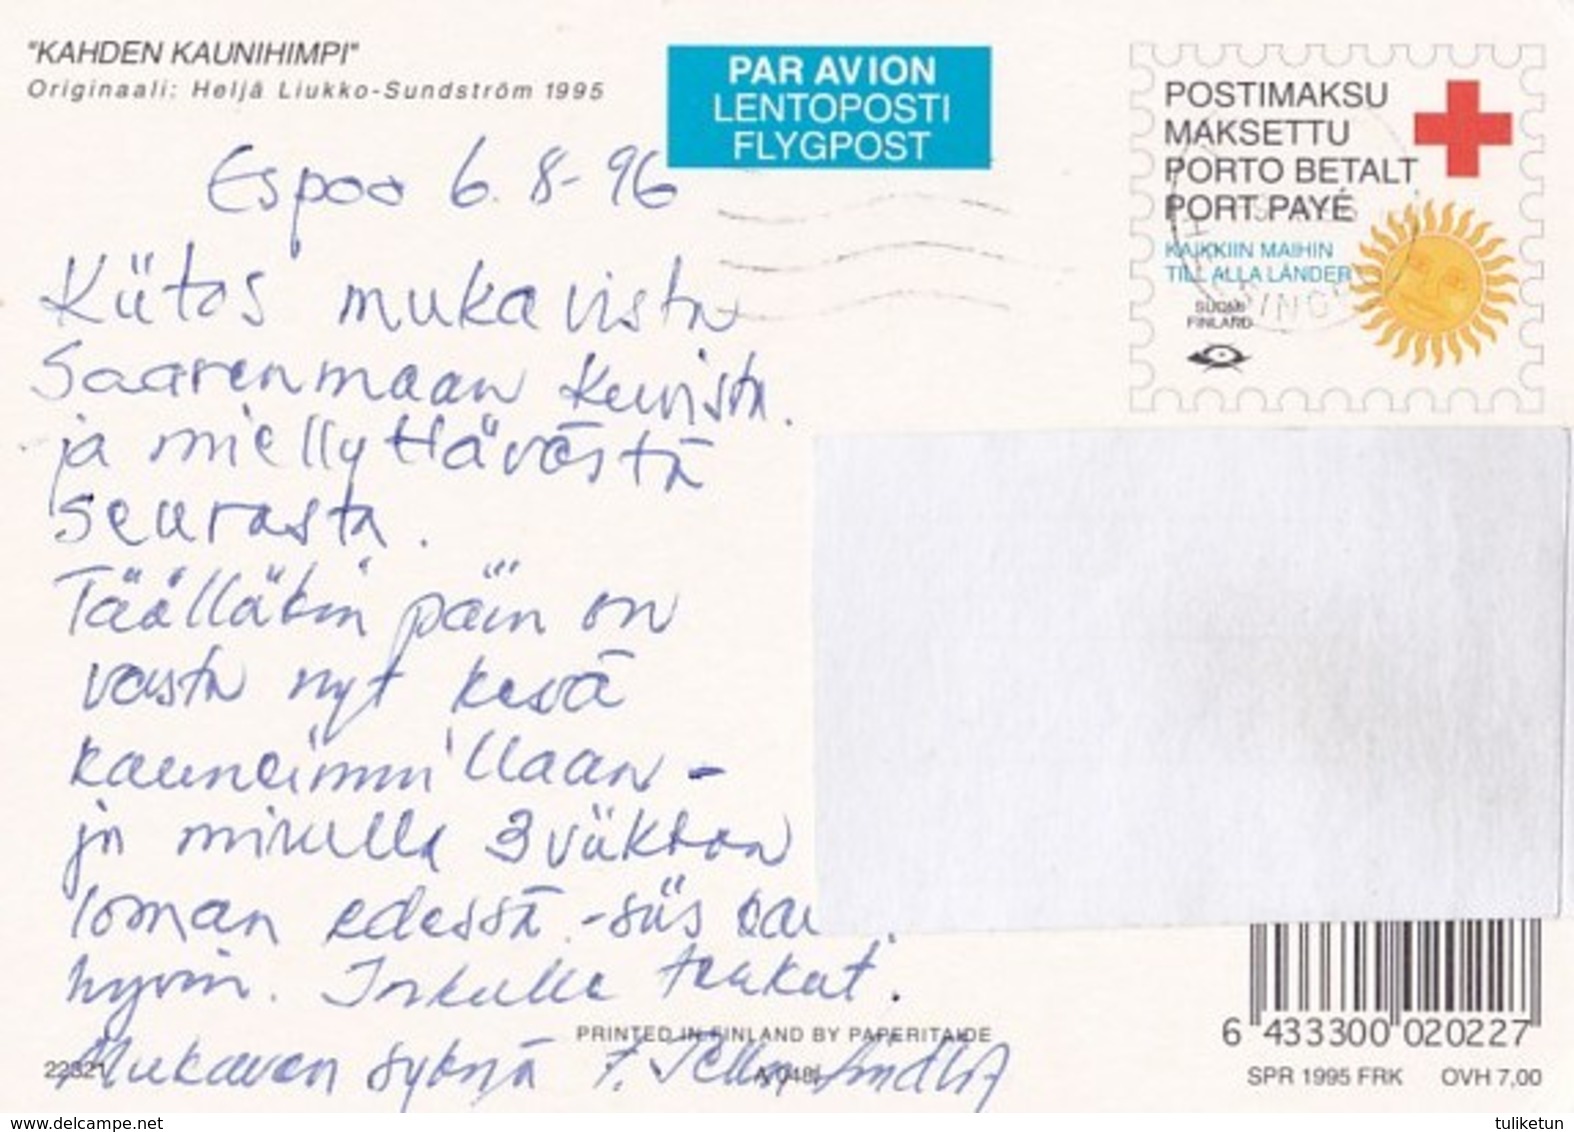 "KAHDEN KAUNIHIMPI"
Originaali: Heljä Liukko-Sundström 1995
PAR AVION
LENTOPOSTI
FLYGPOST
POSTIMAKSU
MAKSETTU
PORTO BETALT
PORT PAYÉ
KAIKKIIN MAIHIN
TILL ALLA LÄNDER
SUOMI
FINLAND
Espoo 6.8-96
Kiitos mukavista
Saarenmaan kuvista
ja miellyttävästä
seurasta.
Täälläkin päin on
vasta nyt kesä
kauneimmillaan -
ja minulla 3 viikon
loman edessä - siis
hyvin. Inkulle taakat.
Mukavan syksyä
PRINTED IN FINLAND BY PAPERITAIDE
22321
6 433300 020227
SPR 1995 FRK OVH 7,00
www.delcampe.net
tuliketun